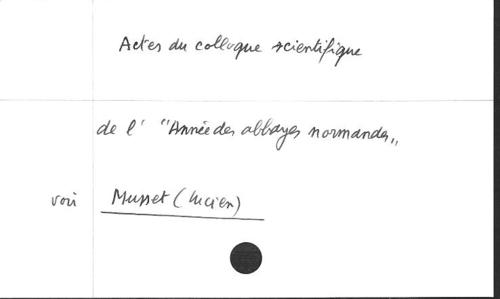 Actes du colloque scientifique
de l' "Année des abbayes normandes"
voir Musset (Lucien)